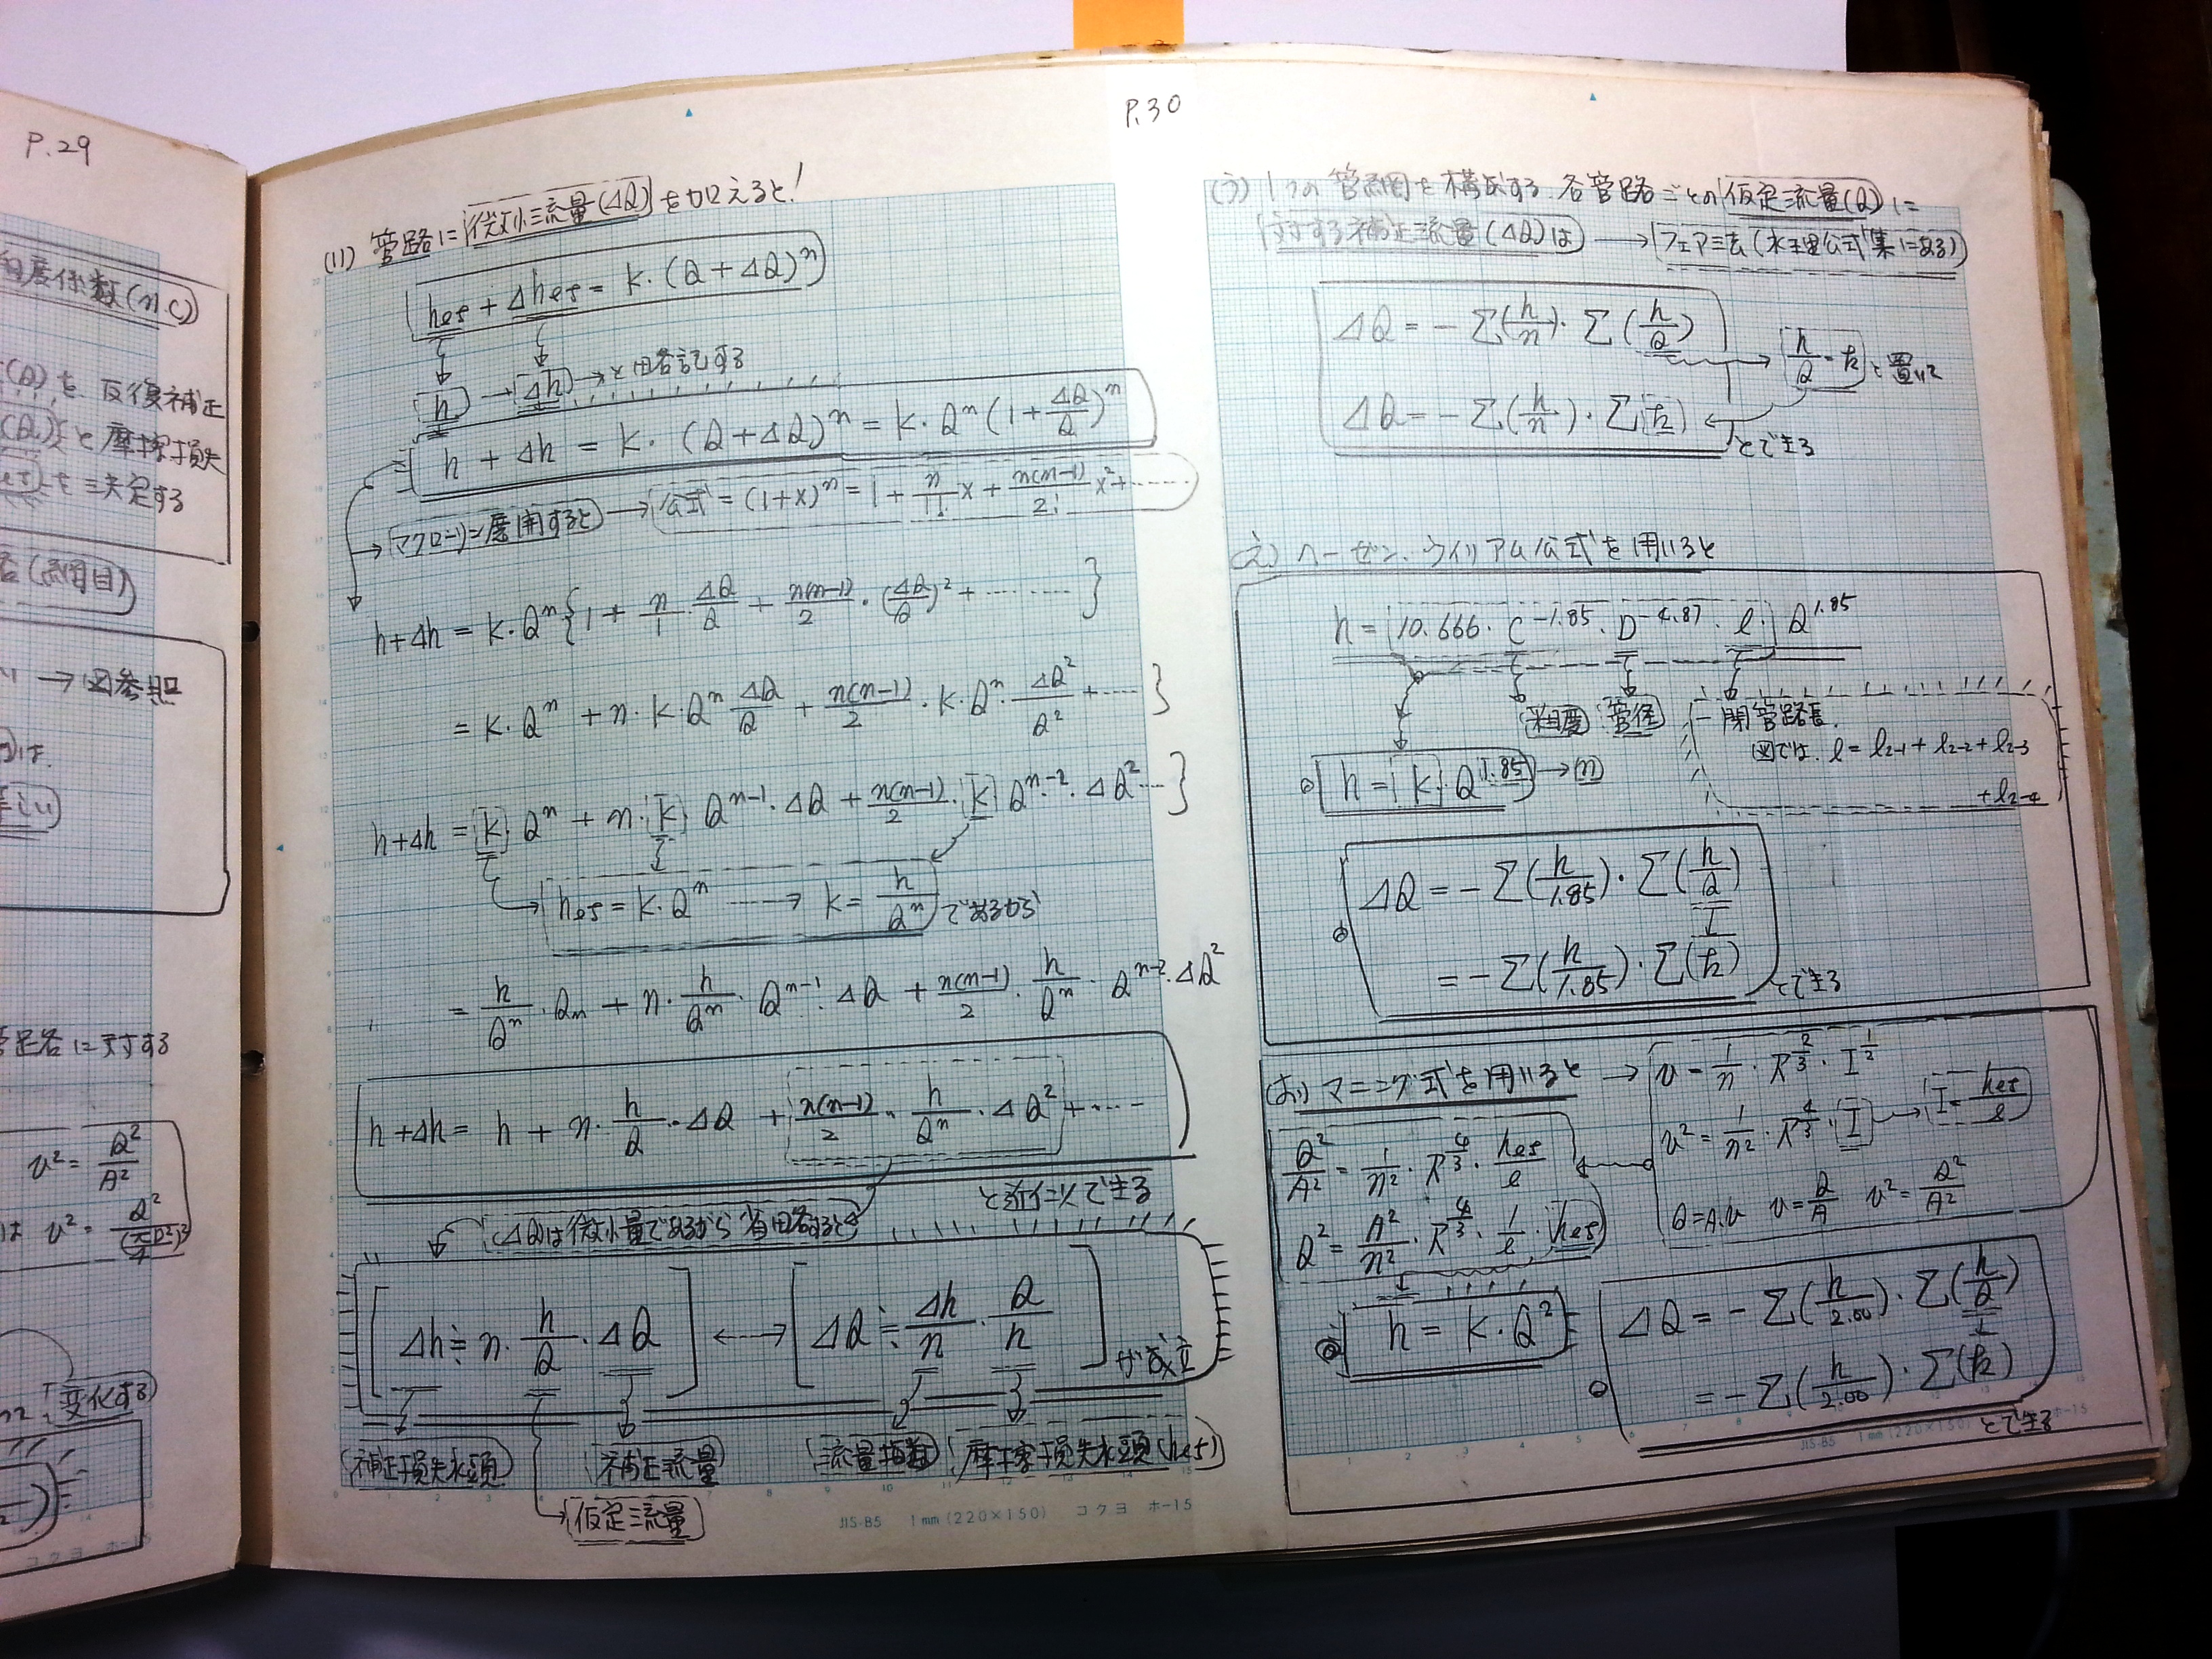 P.29
粗度係数(n.C)
(Q)を、反復補正
(Q)と摩擦損失
を決定する
(流網目)
→図参照
は.
等しい
管路に対する
v² = Q²/A²
は v² = Q²/(πD²/4)²
変化する
コクヨ ホ-15
P.30
(い) 管路に微小流量(ΔQ)を加えると!
hes + Δhes = k・(Q+ΔQ)ⁿ
h → Δh → と略記する
h + Δh = k・(Q+ΔQ)ⁿ = k・Qⁿ(1+ΔQ/Q)ⁿ
→マクローリン展開すると→公式=(1+x)ⁿ=1+n/1! x+n(n-1)/2! x²+……
h+Δh = k・Qⁿ{1 + n/1・ΔQ/Q + n(n-1)/2・(ΔQ/Q)² + ………}
= k・Qⁿ + n・k・Qⁿ ΔQ/Q + n(n-1)/2・k・Qⁿ・ΔQ²/Q² +……}
h+Δh = k Qⁿ + n・k Qⁿ⁻¹・ΔQ + n(n-1)/2・k Qⁿ⁻²・ΔQ²…}
hes = k・Qⁿ ……→ k = h/Qⁿ であるから
= h/Qⁿ・Qn + n・h/Qⁿ・Qⁿ⁻¹・ΔQ + n(n-1)/2・h/Qⁿ・Qⁿ⁻²・ΔQ²
h+Δh = h + n・h/Q・ΔQ + n(n-1)/2・h/Qⁿ・ΔQ² +……
と近似できる
(ΔQ)は微小量であるから省略すると
Δh≒n・h/Q・ΔQ ←→ ΔQ≒Δh/n・Q/h が成立
補正損失水頭 補正流量 流量指数 摩擦損失水頭(hes)
→仮定流量
JIS-B5 1mm(220×150) コクヨ ホ-15
(う) 1つの管網を構成する各管路ごとの仮定流量(Q)に
対する補正流量(ΔQ)は→フェア法(水理公式集にある)
ΔQ = -Σ(h/n)・Σ(h/Q)
→h/Q=k と置いて
ΔQ = -Σ(h/n)・Σ(k)
とできる
(え) ヘーゼン.ウイリアム公式を用いると
h = 10.666・C⁻¹·⁸⁵・D⁻⁴·⁸⁷・l・Q¹·⁸⁵
粗度 管径 一閉管路長.
図では. l = l2-1 + l2-2 + l2-3
+l2-4
h = k Q¹·⁸⁵ →(n)
ΔQ = -Σ(h/1.85)・Σ(h/Q)
= -Σ(h/1.85)・Σ(k)
とできる
(お) マニング式を用いると → v = 1/n・R^2/3・I^1/2
v² = 1/n²・R^4/3・I → I = hes/l
Q²/A² = 1/n²・R^4/3・hes/l
Q=A.v v=Q/A v²=Q²/A²
Q² = A²/n²・R^4/3・1/l・hes
h = k・Q²
ΔQ = -Σ(h/2.00)・Σ(h/Q)
= -Σ(h/2.00)・Σ(k)
とできる
JIS-B5 1mm(220×150) ホ-15